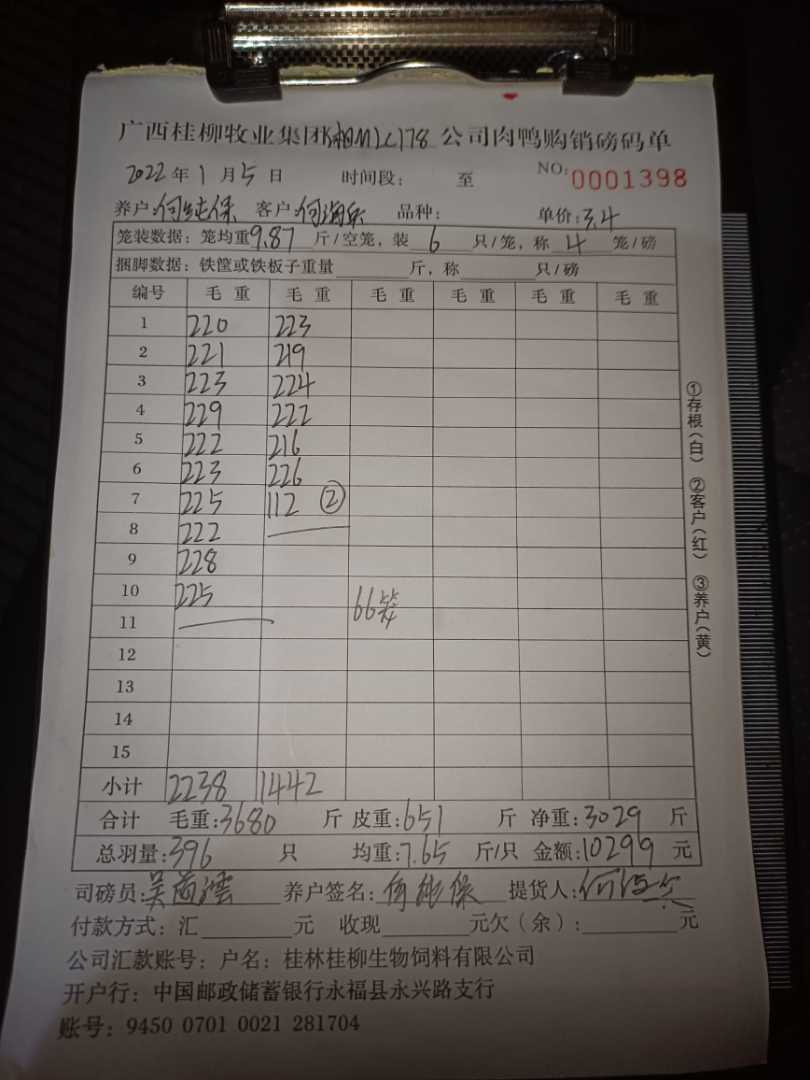 广西桂柳牧业集团 公司肉鸭购销磅码单
2022年1月5日 时间段: 至 NO:0001398
养户:何纯保 客户:何海 品种: 单价:3.4
笼装数据:笼均重9.87斤/空笼,装6只/笼,称4笼/磅
捆脚数据:铁筐或铁板子重量 斤,称 只/磅
编号 毛重 毛重 毛重 毛重 毛重 毛重
1 220 223
2 221 219
3 223 224
4 229 222
5 222 216
6 223 226
7 225 112 ②
8 222
9 228
10 225
11 66笼
12
13
14
15
小计 2238 1442
合计 毛重:3680斤 皮重:651斤 净重:3029斤
总羽量:396只 均重:7.65斤/只 金额:10299元
司磅员: 养户签名:何纯保 提货人:
付款方式:汇 元 收现 元欠(余): 元
公司汇款账号:户名:桂林桂柳生物饲料有限公司
开户行:中国邮政储蓄银行永福县永兴路支行
账号:9450 0701 0021 281704
①存根(白) ②客户(红) ③养户(黄)